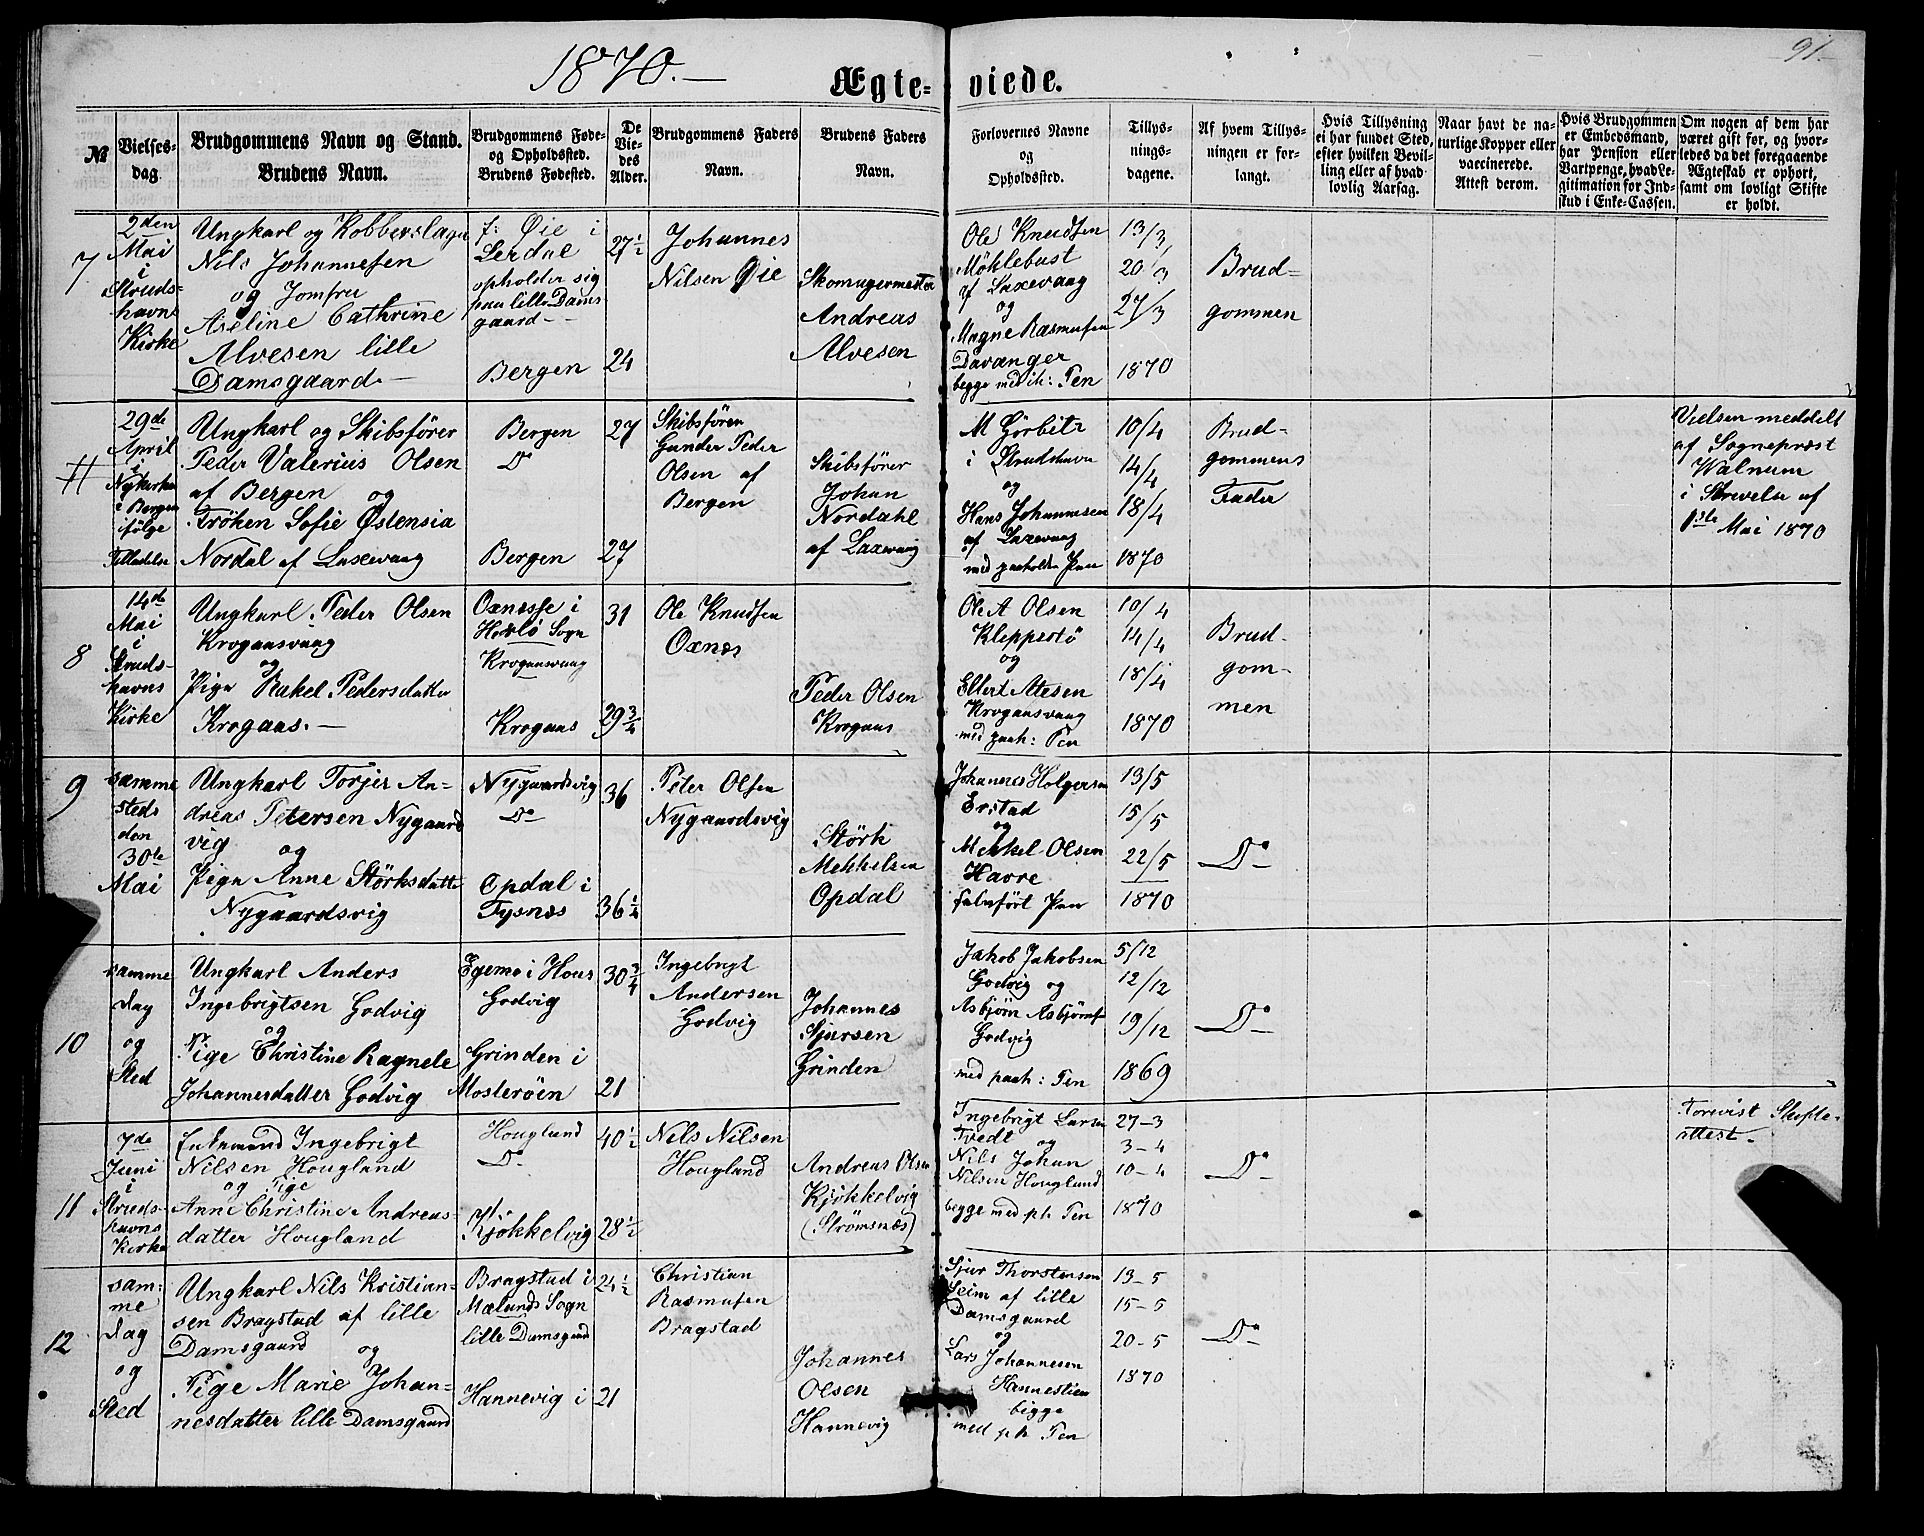 1870.—
91.
Ægte- viede.
№
Vielses-
dag.
Brudgommens Navn og Stand.
Brudens Navn.
Brudgommens Føde-
og Opholdssted.
Brudens Fødested.
De
Vie-
des
Alder.
Brudgommens Faders
Navn.
Brudens Faders
Navn.
Forlovernes Navne
og
Opholdssted.
Tillys-
nings-
dagene.
Af hvem Tillys-
ningen er for-
langt.
Hvis Tillysning
ei har fundet Sted,
efter hvilken Bevil-
ling eller af hvad
lovlig Aarsag.
Naar havt de na-
turlige Kopper eller
vaccinerede.
Attest derom.
Hvis Brudgommen
er Embedsmand,
har Pension eller
Vartpenge, hvad Le-
gitimation for Ind-
skud i Enke-Cassen.
Om nogen af dem har
været gift før, og hvor-
ledes da det foregaaende
Ægteskab er ophørt,
samt om lovligt Skifte
er holdt.
7
2den
Mai
i
Struds-
havns
Kirke
Ungkarl og Kobberslager
Nils Johannesen
og Jomfru
Aseline Cathrine
Alvesen lille
Damsgaard.—
f: Øie i
Lerdal
opholder sig
paa lille Dams
gaard—
Bergen
27½
24
Johannes
Nilsen Øie
Skomagermester
Andreas
Alvesen
Ole Knudsen
Møhlebust
af Laxevaag
og
Magne Rasmusen
Davanger
begge med ih: Pen
13/3
20/3
27/3
1870
Brud-
gommen
29de
April
i
Nykirken
i Bergen
ifølge
Tilladelse
Ungkarl og Skibsfører
Peder Valerius Olsen
af Bergen og
Frøken Sofie Østensia
Nordal af Laxevaag
Bergen
Do
Bergen
27
27
Skibsfören
Gunder Peder
Olsen af
Bergen
Skibsförer
Johan
Nordahl
af Laxevaag
M Görbitz
i Strudshavn
og
Hans Johannesen
af Laxevaag
med paaholden Pen
10/4
14/4
18/4
1870
Brud-
gommens
Fader
Vielsen meddelt
af Sogneprest
Walnum
i Skrivelse af
1ste Mai 1870
8
14de
Mai
i
Struds-
havns
Kirke
Ungkarl: Peder Olsen
Krogaasvaag
og
Pige Rakel Pedersdatter
Krogaas.—
Oxnesse i
Herlö Sogn
Krogaasvaag
Krogaas
31
29¾
Ole Knudsen
Oxnes
Peder Olsen
Krogaas
Ole A Olsen
Kleppestö
og
Ellert Atesen
Krogaasvaag
med paah: Pen
10/4
14/4
18/4
1870
Brud-
gom-
men
9
samme
steds
den
30te
Mai
Ungkarl Torjer An-
dreas Petersen Nygaard
vig og
Pige Anne Störksdatter
Nygaardsvig
Nygaardsvig
Do
Opdal i
Tysnæs
36
36¼
Peter Olsen
Nygaardsvig
Störk
Mekkelsen
Opdal
Johannes Holgersen
Erstad
og
Mekkel Olsen
Havre
selvfört Pen
13/5
15/5
22/5
1870
Do
10
samme
dag
og
Sted
Ungkarl Anders
Ingebrigtsen Godvig
og
Pige Christine Ragnele
Johannesdatter Godvig
Egemo i Hous
Godvig
Grinden i
Mosterøen
30¾
21
Ingebrigt
Andersen
Godvig
Johannes
Sjursen
Grinden
Jakob Jakobsen
Godvig og
Asbjörn Asbjörns
Godvig
med paah: Pen
5/12
12/12
19/12
1869
Do
11
7de
Juni
i
Struds-
havns
Kirke
Enkemand Ingebrigt
Nilsen Hougland
og Pige
Anne Christine Andreas-
datter Hougland
Hougland
Do
Kjökkelvig
40½
28½
Nils Nilsen
Hougland
Andreas Olsen
Kjökkelvig
(Strömsnæs)
Ingebrigt Larsen
Tvedt og
Nils Johan
Nilsen Hougland
begge med ph Pen
27-3
3-4
10-4
1870
Do
Forevist Skifte-
attest.
12
sam-
me
dag
og
Sted
Ungkarl Nils Kristian-
sen Bragstad af lille
Damsgaard og
Pige Marie Johan-
nesdatter lille Damsgaard
Bragstad i
Mælands Sogn
lille Damsgaard
Hannevig i
24½
21
Christian
Rasmusen
Bragstad
Johannes
Olsen
Hannevig
Sjur Thorstensen
Seim af lille
Damsgaard
og
Lars Johannesen
begge
med ph Pen
13-5
15-5
20-5
1870
Do